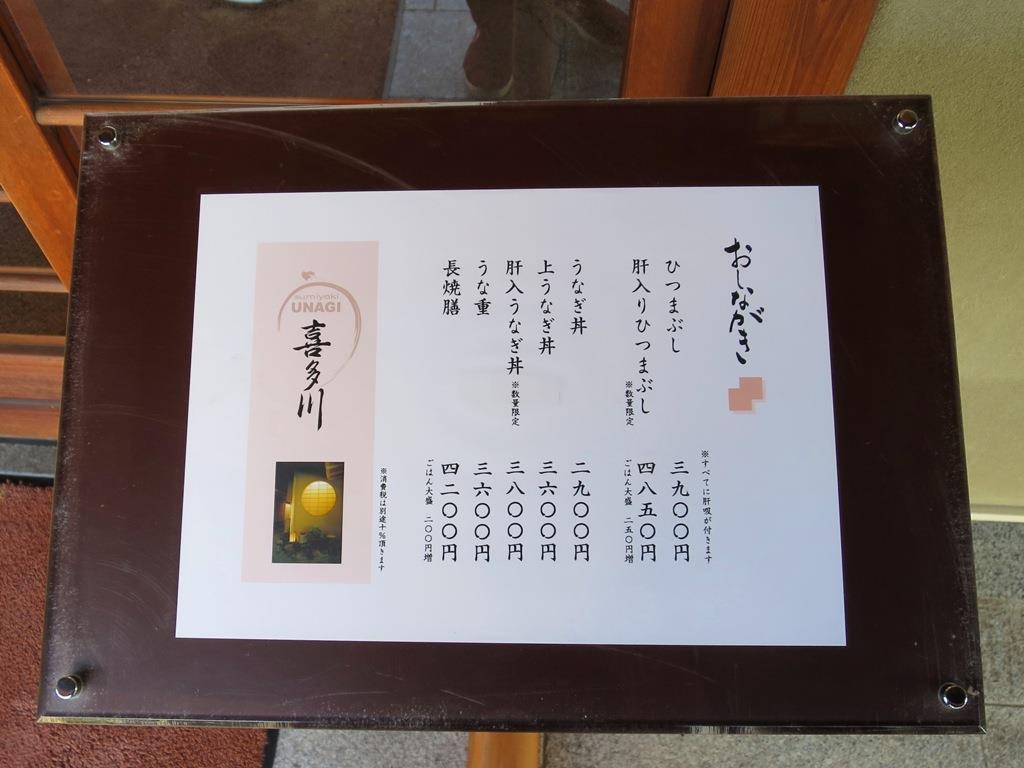 おしながき
※すべてに肝吸が付きます
ひつまぶし 三九〇〇円
肝入りひつまぶし ※数量限定 四八五〇円
ごはん大盛 二五〇円増
うなぎ丼 二九〇〇円
上うなぎ丼 三六〇〇円
肝入うなぎ丼 ※数量限定 三八〇〇円
うな重 三六〇〇円
長焼膳 四二〇〇円
ごはん大盛 二〇〇円増
※消費税は別途十%頂きます
sumiyaki
UNAGI
喜多川